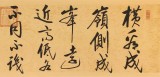 橫看成
嶺側成
峯遠
近高低各
不同不識